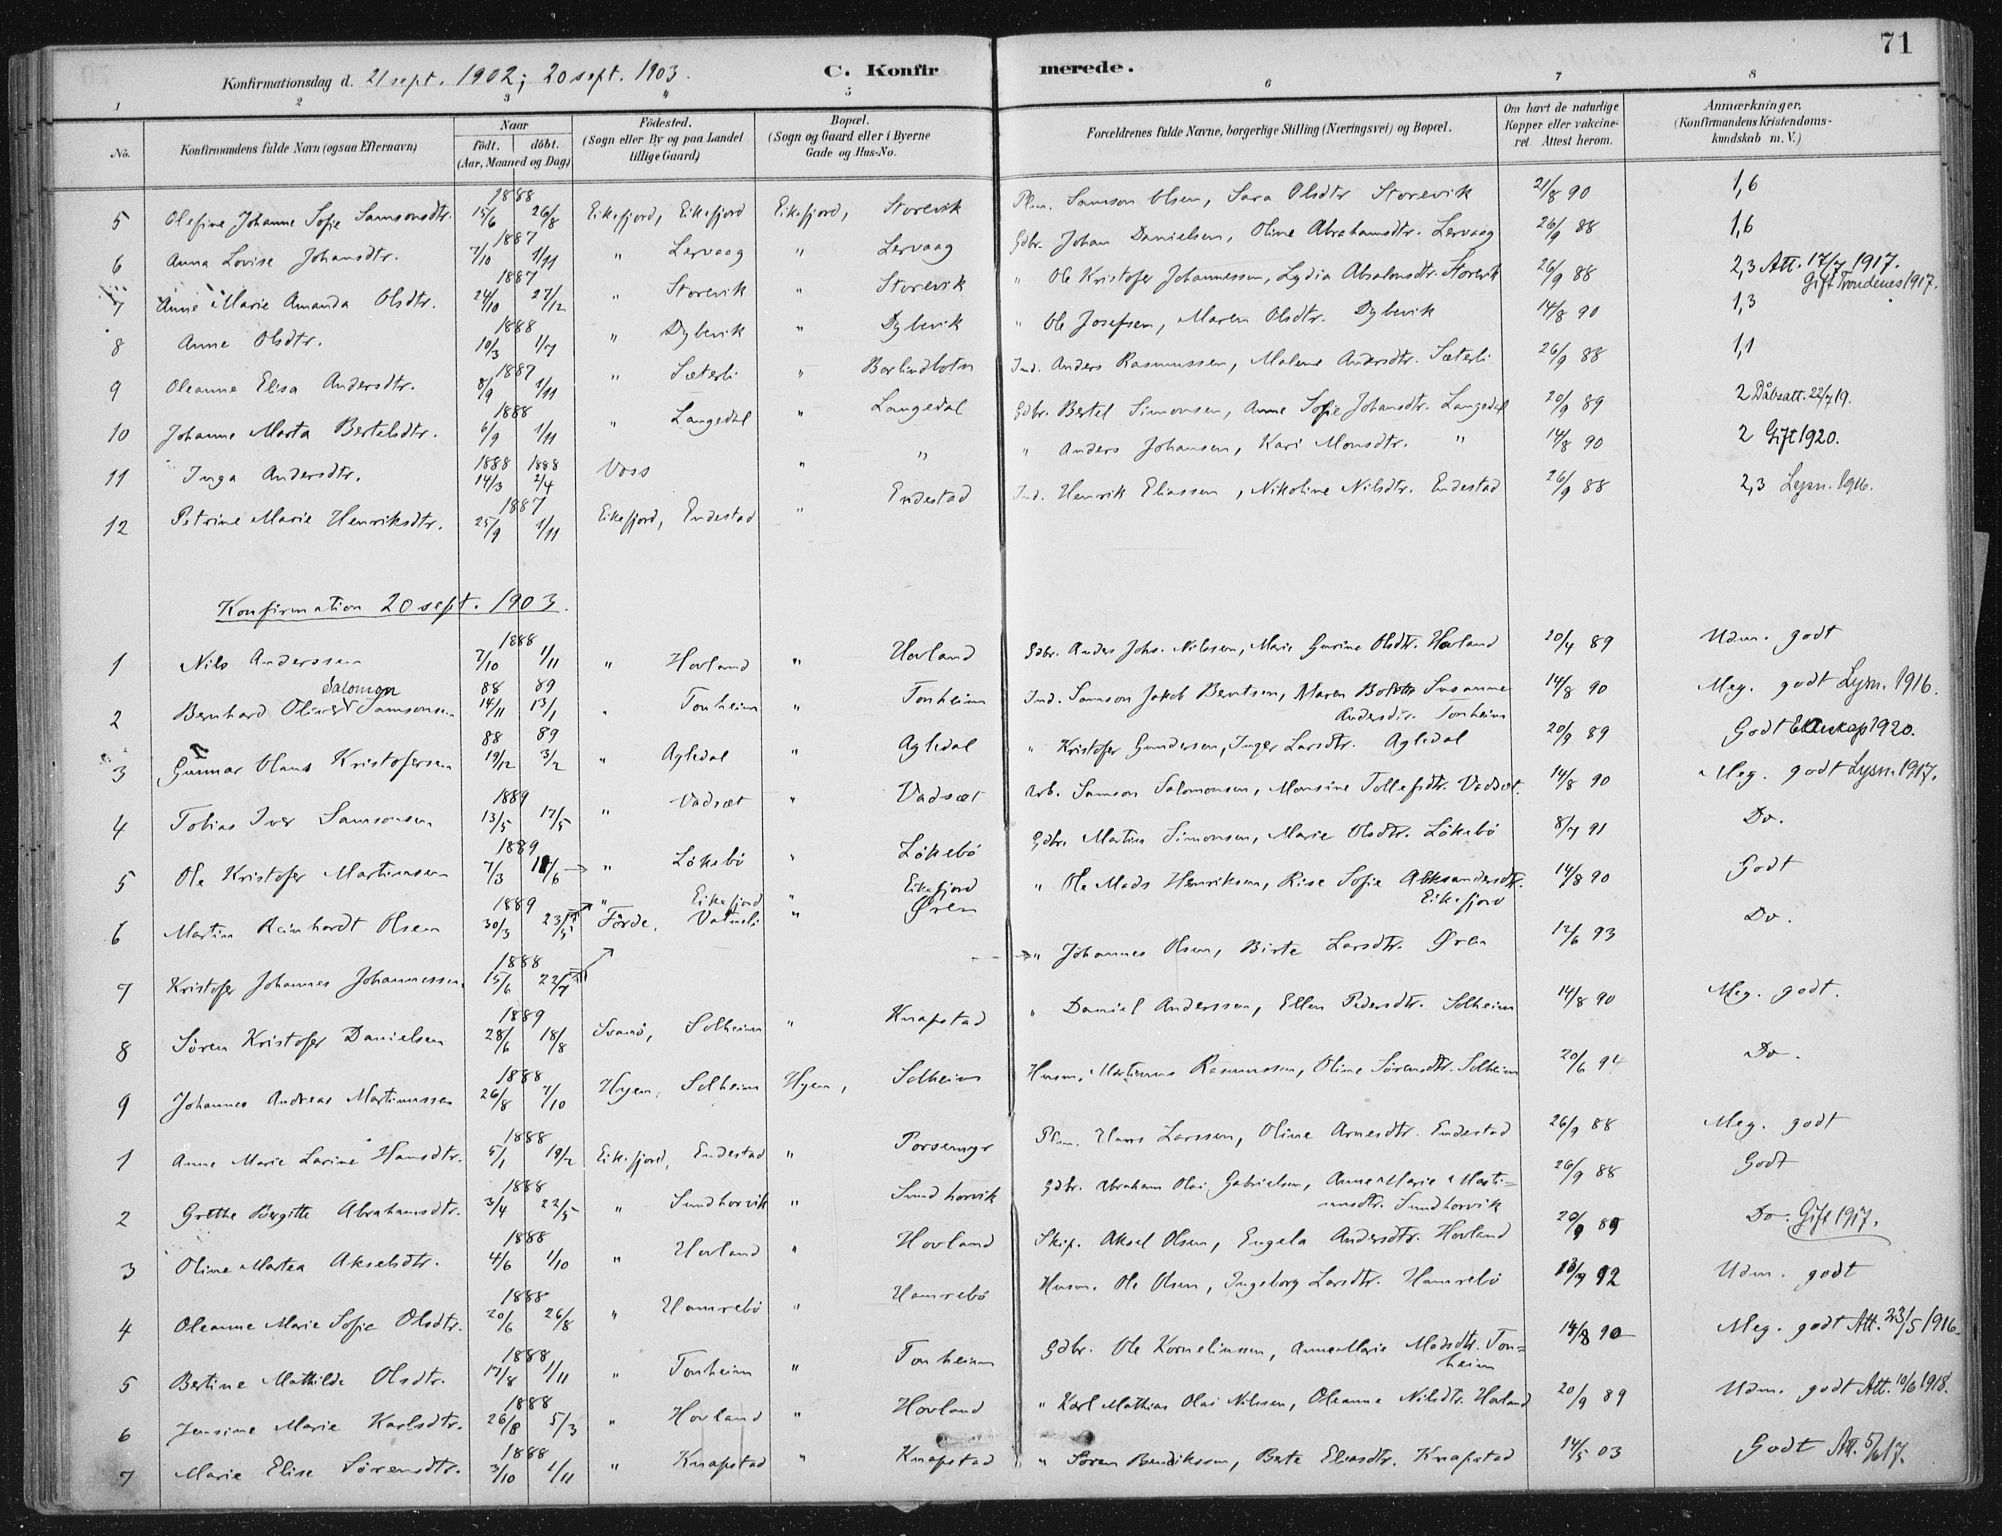 71
Konfirmationsdag d. 21 sept. 1902; 20 sept. 1903. C. Konfirmerede.
1 2 3 4 5 6 7 8
No. Konfirmandens fulde Navn (ogsaa Efternavn) Naar födt. döbt. (Aar, Maaned og Dag) Födested. (Sogn eller By og paa Landet tillige Gaard) Bopæl. (Sogn og Gaard eller i Byerne Gade og Hus-No. Forældrenes fulde Navne, borgerlige Stilling (Næringsvei) og Bopæl. Om havt de naturlige Kopper eller vakcineret. Attest herom. Anmærkninger. (Konfirmandens Kristendomskundskab m. V.)
5 Olefine Johanne Sofie Samsonsdtr. 1888 15/6 26/8 Eikefjord, Eikefjord Eikefjord, Storevik Plm. Samson Olsen, Sara Olsdtr Storevik 21/8 90 1,6
6 Anna Lovise Johansdtr. 1887 7/10 1/11 " Lervaag " Lervaag Gdbr. Johan Danielsen, Oline Abrahamsdtr. Lervaag 26/9 88 1,6
7 Anne Marie Amanda Olsdtr. 1887 24/10 27/12 " Storevik " Storevik " Ole Kristofer Johannessen, Lydia Absalonsdtr. Storevik 26/9 88 2,3 Att. 17/7 1917. Gift Trondenes 1917.
8 Anne Olsdtr. 1888 10/3 1/7 " Dybevik " Dybevik " Ole Josefsen, Maren Olsdtr. Dybevik 14/8 90 1,3
9 Oleanne Elisa Andersdtr. 1887 8/9 1/11 " Sæterli " Borlindbotn Ind. Anders Rasmussen, Malene Andersdtr. Sæterli 26/9 88 1,1
10 Johanne Marta Bertelsdtr. 1888 6/9 1/11 " Langedal " Langedal Gdbr. Bertel Simonsen, Anne Sofie Johansdtr. Langedal 20/9 89 2 Dåbsatt. 22/7 19.
11 Inga Andersdtr. 1888 14/3 1888 2/4 Voss " " " Anders Johansen, Kari Monsdtr. " 14/8 90 2 Gift 1920.
12 Petrine Marie Henriksdtr. 1887 25/9 1/11 Eikefjord, Endestad " Endestad Ind. Henrik Eliassen, Nikoline Nilsdtr. Endestad 26/9 88 2,3 Lysn. 1916.
Konfirmation 20 sept. 1903.
1 Nils Anderssen 1888 7/10 1/11 " Hovland " Hovland Gdbr. Anders Johs. Nilssen, Marie Gurine Olsdtr. Hovland 20/4 89 Udm. godt
2 Bernhard Oliver Salomon Samsonsen 88 14/11 89 13/1 " Tonheim " Tonheim Ind. Samson Jakob Berntsen, Maren Susanne Andersdtr. Tonheim 14/8 90 Meg. godt Lysn. 1916.
3 Gunnar Olaus Kristofersen 88 19/12 89 3/2 " Agledal " Agledal " Kristofer Gundersen, Inger Larsdtr. Agledal 20/9 89 Godt 1920.
4 Tobias Iver Samsonsen 1889 13/5 17/5 " Vadsæt " Vadsæt Arb. Samson Salomonsen, Monsine Tollefsdtr. Vadsæt. 14/8 90 Meg. godt Lysn. 1917.
5 Ole Kristofer Martinussen 1889 7/3 /6 " Lökebö " Lökebö Gdbr. Martin Simonsen, Marie Olsdtr. Lökebö 8/7 91 Do.
6 Martin Reinhardt Olsen 1889 30/3 23/5 " Eikefjord " Eikefjord " Ole Mads Henriksen, Rise Sofie Aleksandersdtr. Eikefjord 14/8 90 Godt
7 Kristofer Johannes Johannessen 1888 15/6 22/7 Förde, Vatneli " Øren " Johannes Olsen, Birte Larsdtr. Øren 12/6 93 Do.
8 Sören Kristofer Danielsen 1889 28/6 18/8 Svanö, Solheim " Knapstad " Daniel Anderssen, Ellen Pedersdtr. Solheim 14/8 90 Meg. godt.
9 Johannes Andreas Martinussen 1888 26/8 7/10 Hyen, Solheim Hyen, Solheim Husm. Martinus Rasmussen, Oline Sörensdtr. Solheim 20/6 94 Do.
1 Anne Marie Larine Hansdtr. 1888 5/1 19/2 Eikefjord, Endestad " Porsemyr Plm. Hans Larssen, Oline Arnesdtr. Endestad 26/9 88 Meg. godt
2 Grethe Bergitte Abrahamsdtr. 1888 3/4 22/5 " Sundhorvik " Sundhorvik Gdbr. Abraham Olai Gabrielsen, Anne Marie Martinusdtr. Sundhorvik 26/9 88 Godt
3 Oline Martea Akselsdtr. 1888 4/6 1/10 " Hovland " Hovland Skip. Aksel Olsen, Engela Andersdtr. Hovland 20/9 89 Do. Gift 1917.
4 Oleanne Marie Sofie Olsdtr. 1888 20/6 26/8 " Hamrebö " Hamrebö Husm. Ole Olsen, Ingeborg Larsdtr. Hamrebö 13/7 92 Udm. godt
5 Bertine Mathilde Olsdtr. 1888 17/8 1/11 " Tonheim " Tonheim Gdbr. Ole Korneliussen, Anne Marie Madsdtr. Tonheim 14/8 90 Meg. godt Att. 23/5 1916.
6 Jensine Marie Karlsdtr. 1888 26/8 5/3 " Hovland " Hovland " Karl Mathias Olai Nilssen, Oleanne Nilsdtr. Hovland 20/9 89 Udm. godt Att. 10/6 1918.
7 Marie Elise Sörensdtr. 1888 3/10 1/11 " Knapstad " Knapstad " Sören Bendiksen, Berte Eliasdtr. Knapstad 14/5 03 Godt Att. 5/6 17.